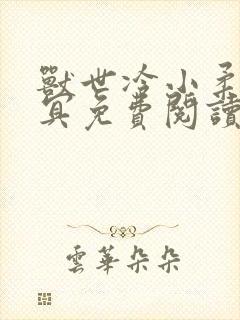 獸世冷小柔
寞免費閱讀
雲華朵朵